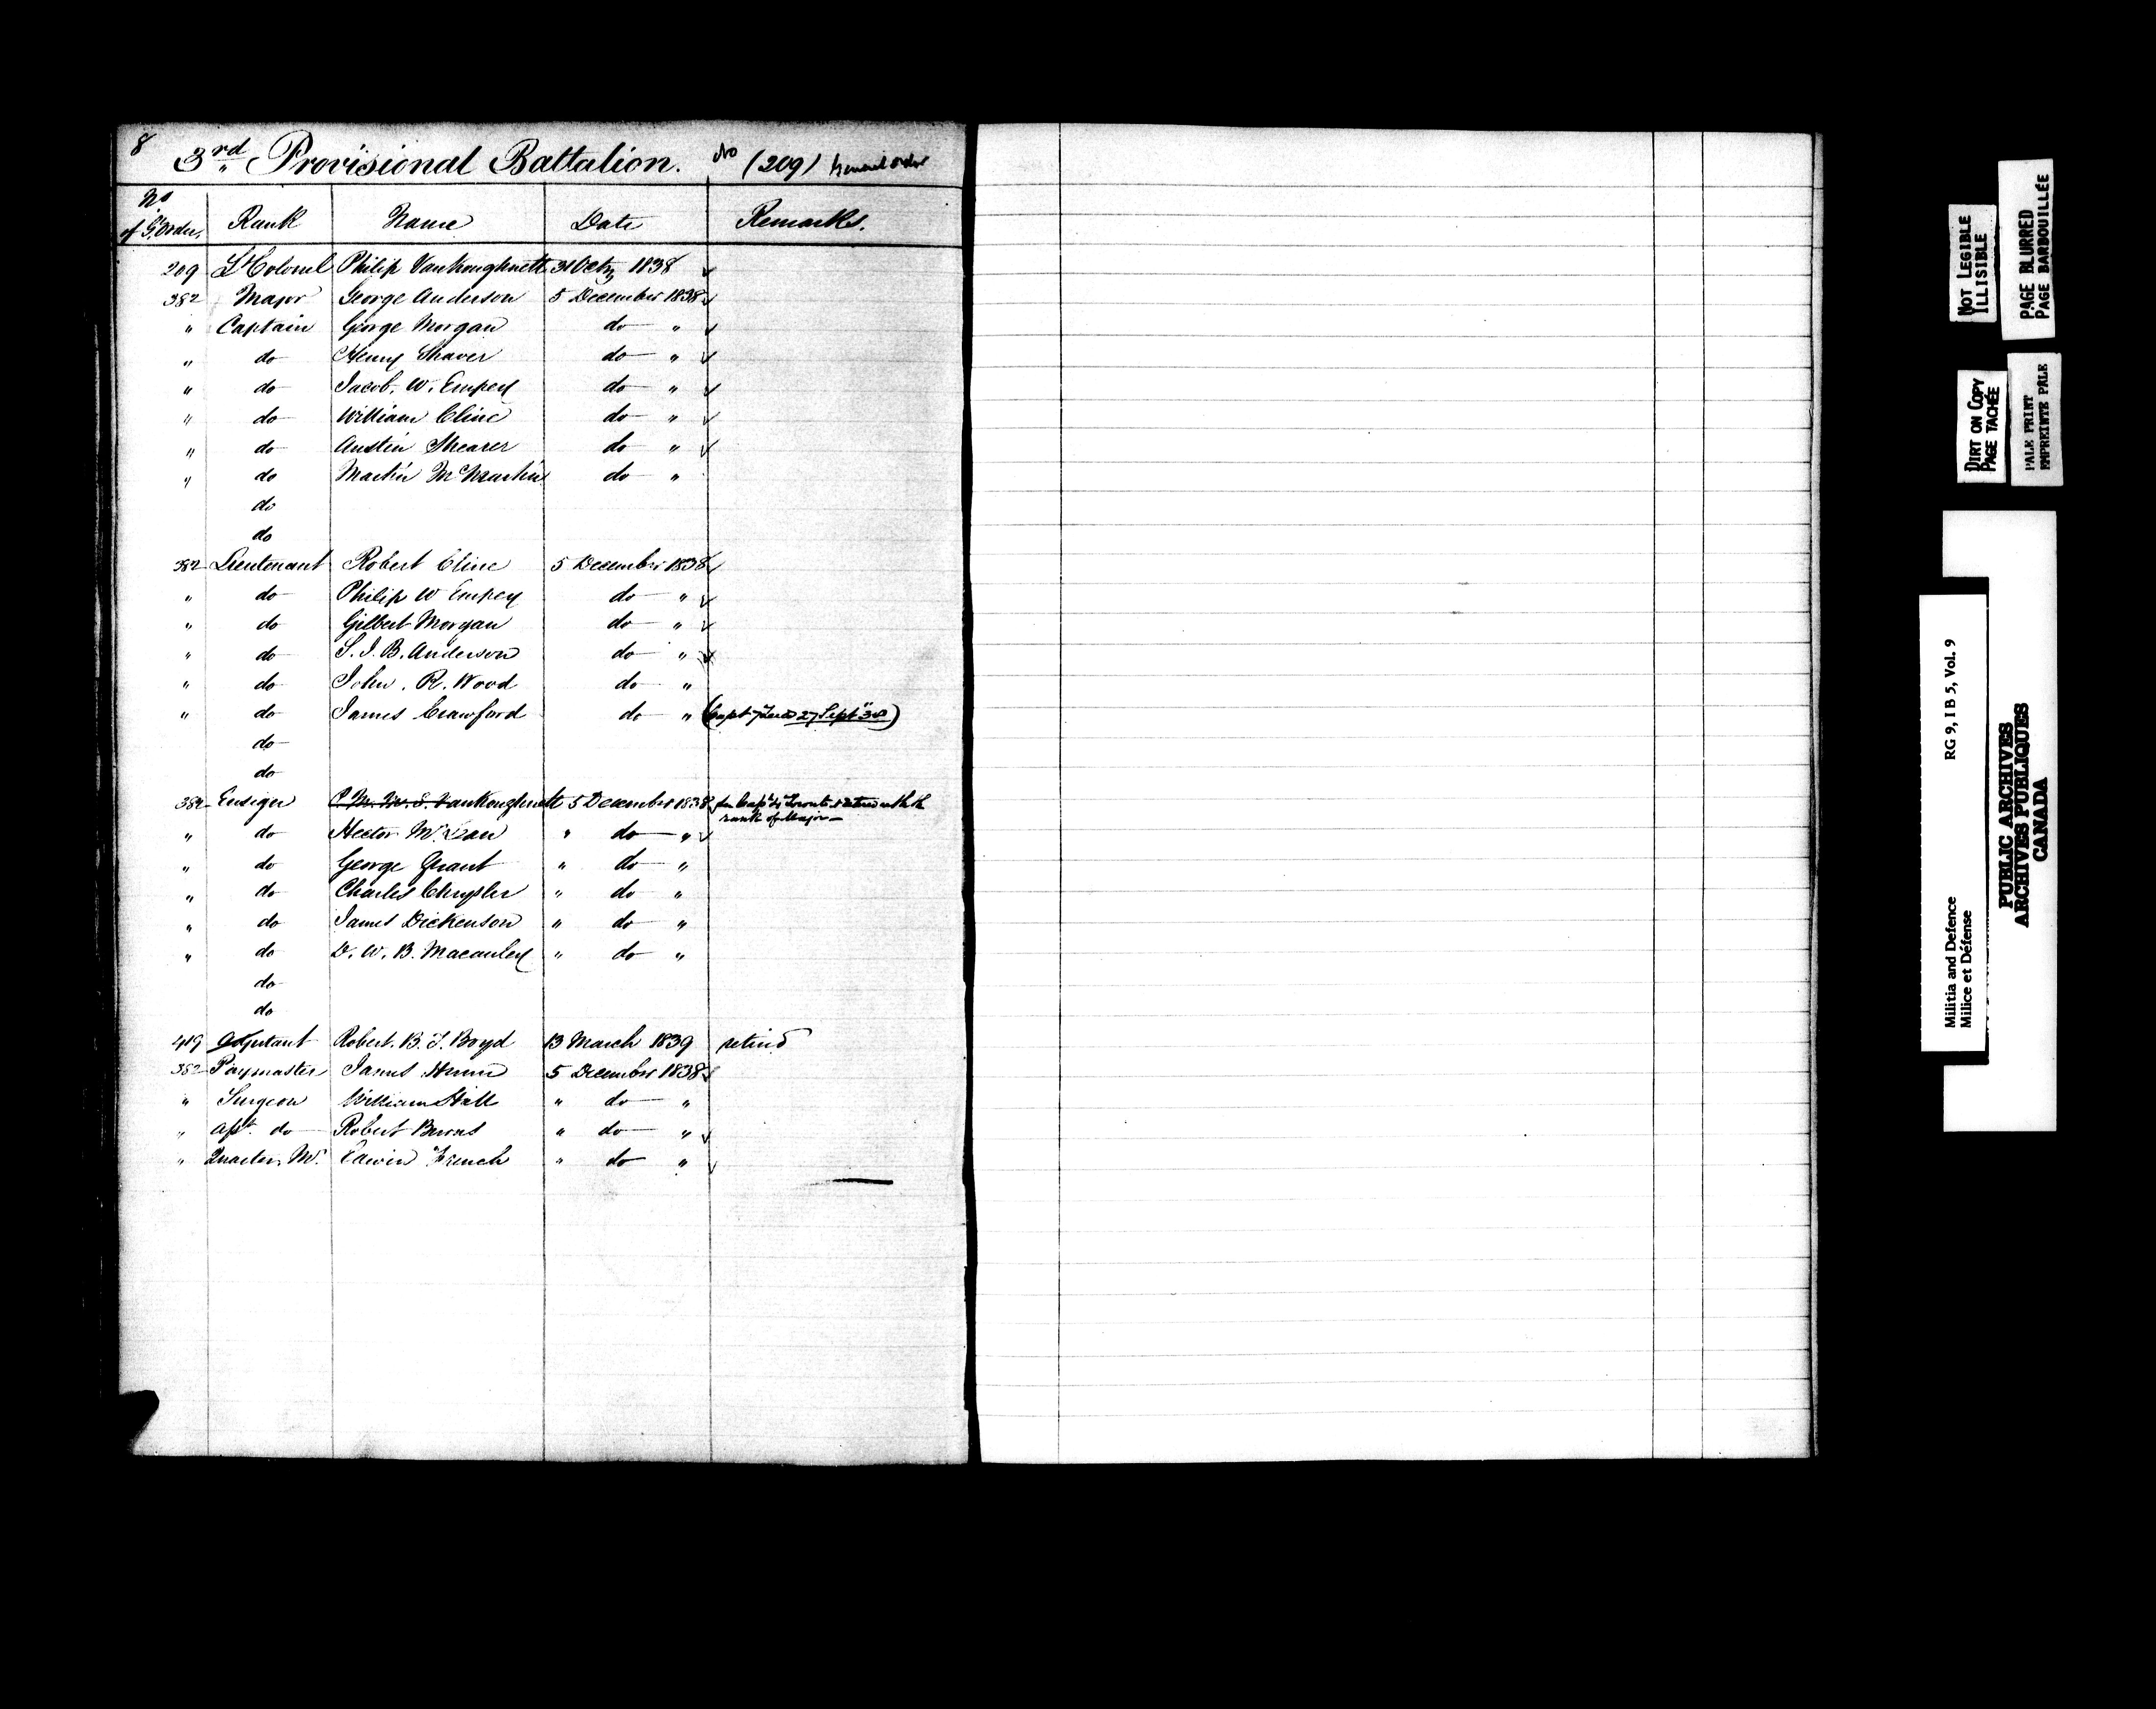 8
3rd Provisional Battalion. No (209) General order
No of G. Order, Rank Name Date Remarks.
209 Lt Colonel Philip Vankoughnett 31 Octr 1838 ✓
382 Major George Anderson 5 December 1838 ✓
" Captain George Morgan do " ✓
" do Henry Shaver do " ✓
" do Jacob. W. Empey do " ✓
" do William Cline do " ✓
" do Austin Shearer do " ✓
" do Martin McMartin do "
do
do
382 Lieutenant Robert Cline 5 December 1838 ✓
" do Philip W Empey do " ✓
" do Gilbert Morgan do " ✓
" do S. J. B. Anderson do " ✓
" do John. R. Wood do "
" do James Crawford do " (Capt 27 Sept 38)
do
do
382 Ensign P. M. M. S. Vankoughnett 5 December 1838 Capt Toronto retired with the
rank of Major
" do Hector McLean " do " ✓
" do George Grant " do "
" do Charles Chrysler " do "
" do James Dickenson " do "
" do D. W. B. Macauley " do "
do
do
419 Adjutant Robert. B. F. Boyd 13 March 1839 retired
382 Paymaster James 5 December 1838 ✓
" Surgeon William Hall " do "
" Asst. do Robert Burns " do " ✓
" Quarter Mr. Edwin French " do " ✓
NOT LEGIBLE
ILLISIBLE
PAGE BLURRED
PAGE BARBOUILLÉE
DIRT ON COPY
PAGE TACHÉE
PALE PRINT
EMPREINTE PÂLE
RG 9, I B 5, Vol. 9
Militia and Defence
Milice et Défense
PUBLIC ARCHIVES
ARCHIVES PUBLIQUES
CANADA